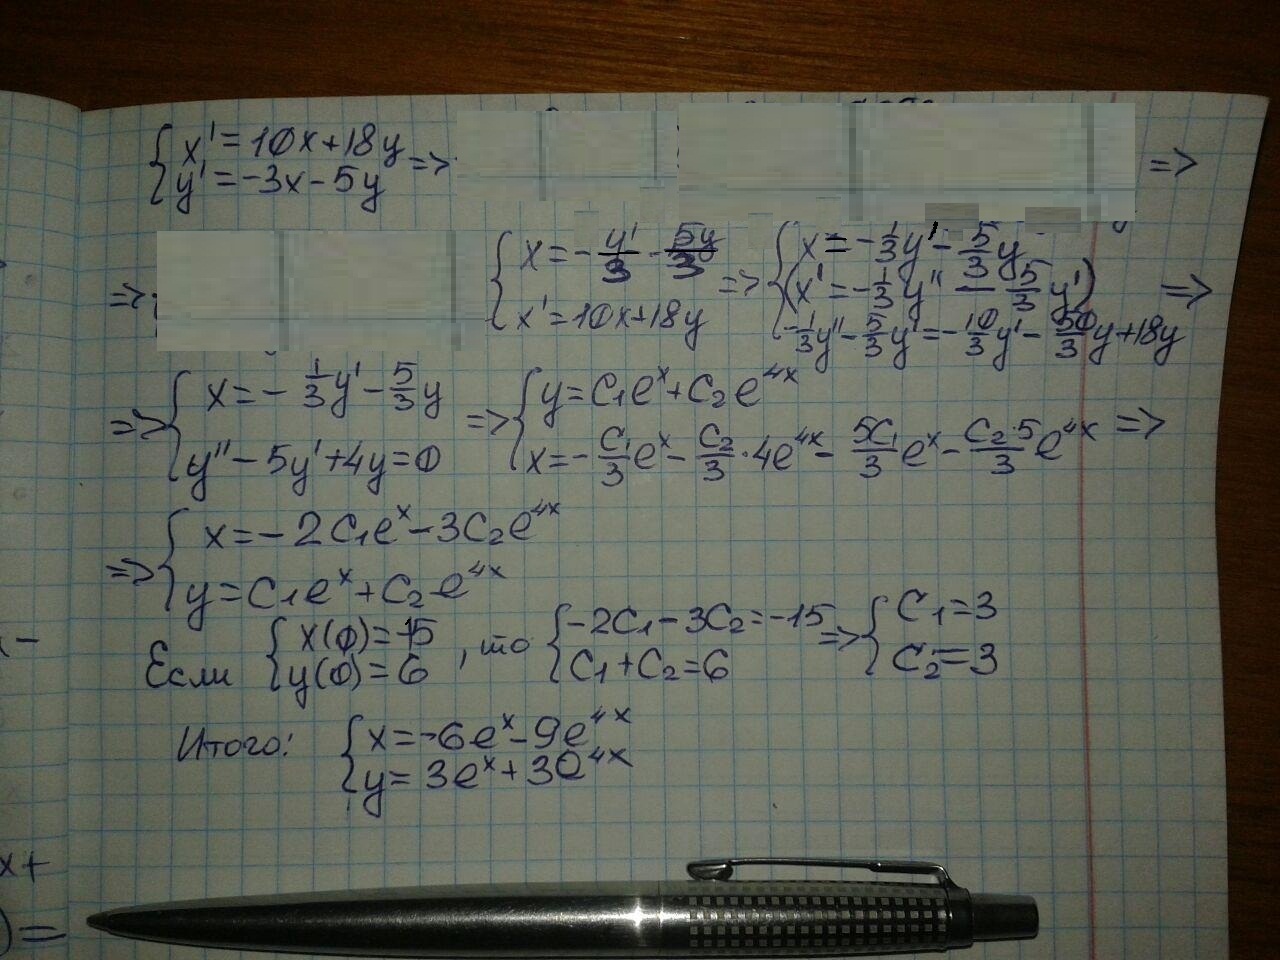 { x' = 10x + 18y
y' = -3x - 5y => =>
=> { x = - y'/3 - 5y/3
x' = 10x + 18y => { x = - 1/3 y' - 5/3 y
(x' = - 1/3 y'' - 5/3 y')
- 1/3 y'' - 5/3 y' = - 10/3 y' - 50/3 y + 18y =>
=> { x = - 1/3 y' - 5/3 y
y'' - 5y' + 4y = 0 => { y = C₁eˣ + C₂e⁴ˣ
x = - C₁/3 eˣ - C₂/3 · 4e⁴ˣ - 5C₁/3 eˣ - C₂·5/3 e⁴ˣ =>
=> { x = -2C₁eˣ - 3C₂e⁴ˣ
y = C₁eˣ + C₂e⁴ˣ
Если { x(0) = -15
y(0) = 6 , то { -2C₁ - 3C₂ = -15
C₁ + C₂ = 6 => { C₁ = 3
C₂ = 3
Итого: { x = -6eˣ - 9e⁴ˣ
y = 3eˣ + 3e⁴ˣ
x+
) =